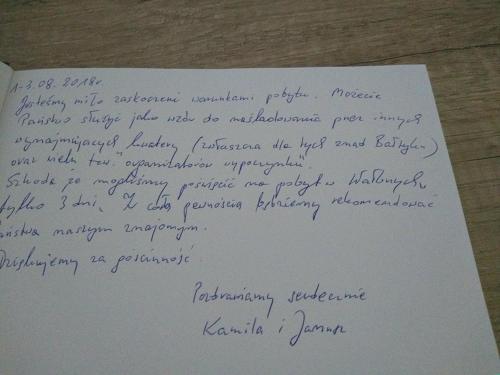 1-3.08.2018r.
Jesteśmy miło zaskoczeni warunkami pobytu. Możecie
Państwo służyć jako wzór do naśladowania przez innych
wynajmujących kwatery (zwłaszcza dla tych znad Bałtyku)
oraz wielu tzw. "organizatorów wypoczynku".
Szkoda że mogliśmy poświęcić na pobyt w
tylko 3 dni. Z całą pewnością będziemy rekomendować
Państwa naszym znajomym.
Dziękujemy za gościnność.
Pozdrawiamy serdecznie
Kamila i Janusz